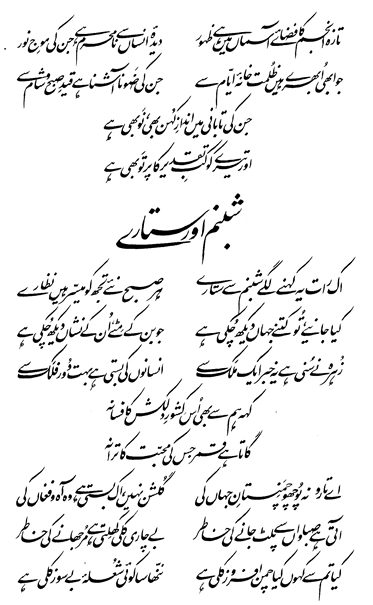 تازہ انجم کا فضائے آسماں میں ہے ظہور دیدۂ انساں سے نامحرم ہے جن کی موجِ نور
جو ابھی ابھرے ہیں ظلمت خانۂ ایّام سے جن کی ضَو ناآشنا ہے قیدِ صبح و شام سے
جن کی تابانی میں اندازِ کُہن بھی، نَو بھی ہے
اور تیرے کوکبِ تقدیر کا پرتَو بھی ہے
شبنم اور ستارے
اک رات یہ کہنے لگے شبنم سے ستارے ہر صبح نئے تجھ کو میسّر ہیں نظارے
کیا جانیے تُو کتنے جہاں دیکھ چُکی ہے جو بن کے مٹے، اُن کے نشاں دیکھ چُکی ہے
زُہرہ نے سُنی ہے یہ خبر ایک مَلک سے انسانوں کی بستی ہے بہت دُور فلک سے
کہہ ہم سے بھی اُس کشورِ دلکش کا فسانہ
گاتا ہے قمر جس کی محبّت کا ترانہ
اے تارو نہ پُوچھو چَمنِستانِ جہاں کی گلشن نہیں، اک بستی ہے وہ آہ و فغاں کی
آتی ہے صبا واں سے پلٹ جانے کی خاطر بے چاری کلی کھِلتی ہے مُرجھانے کی خاطر
کیا تم سے کہوں کیا چمن افروز کلی ہے ننھّا سا کوئی شعلۂ بے سوز کلی ہے